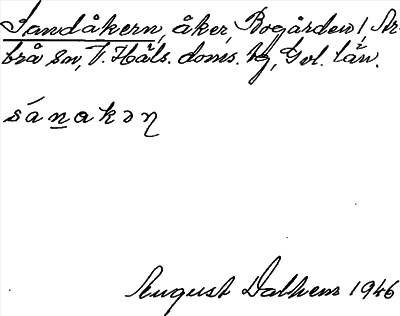 Sandåkern, åker, Bogården, Ar-
brå sn, V. Häls. doms. hg, Gvl. län.
sánakən
August Dalhem 1946